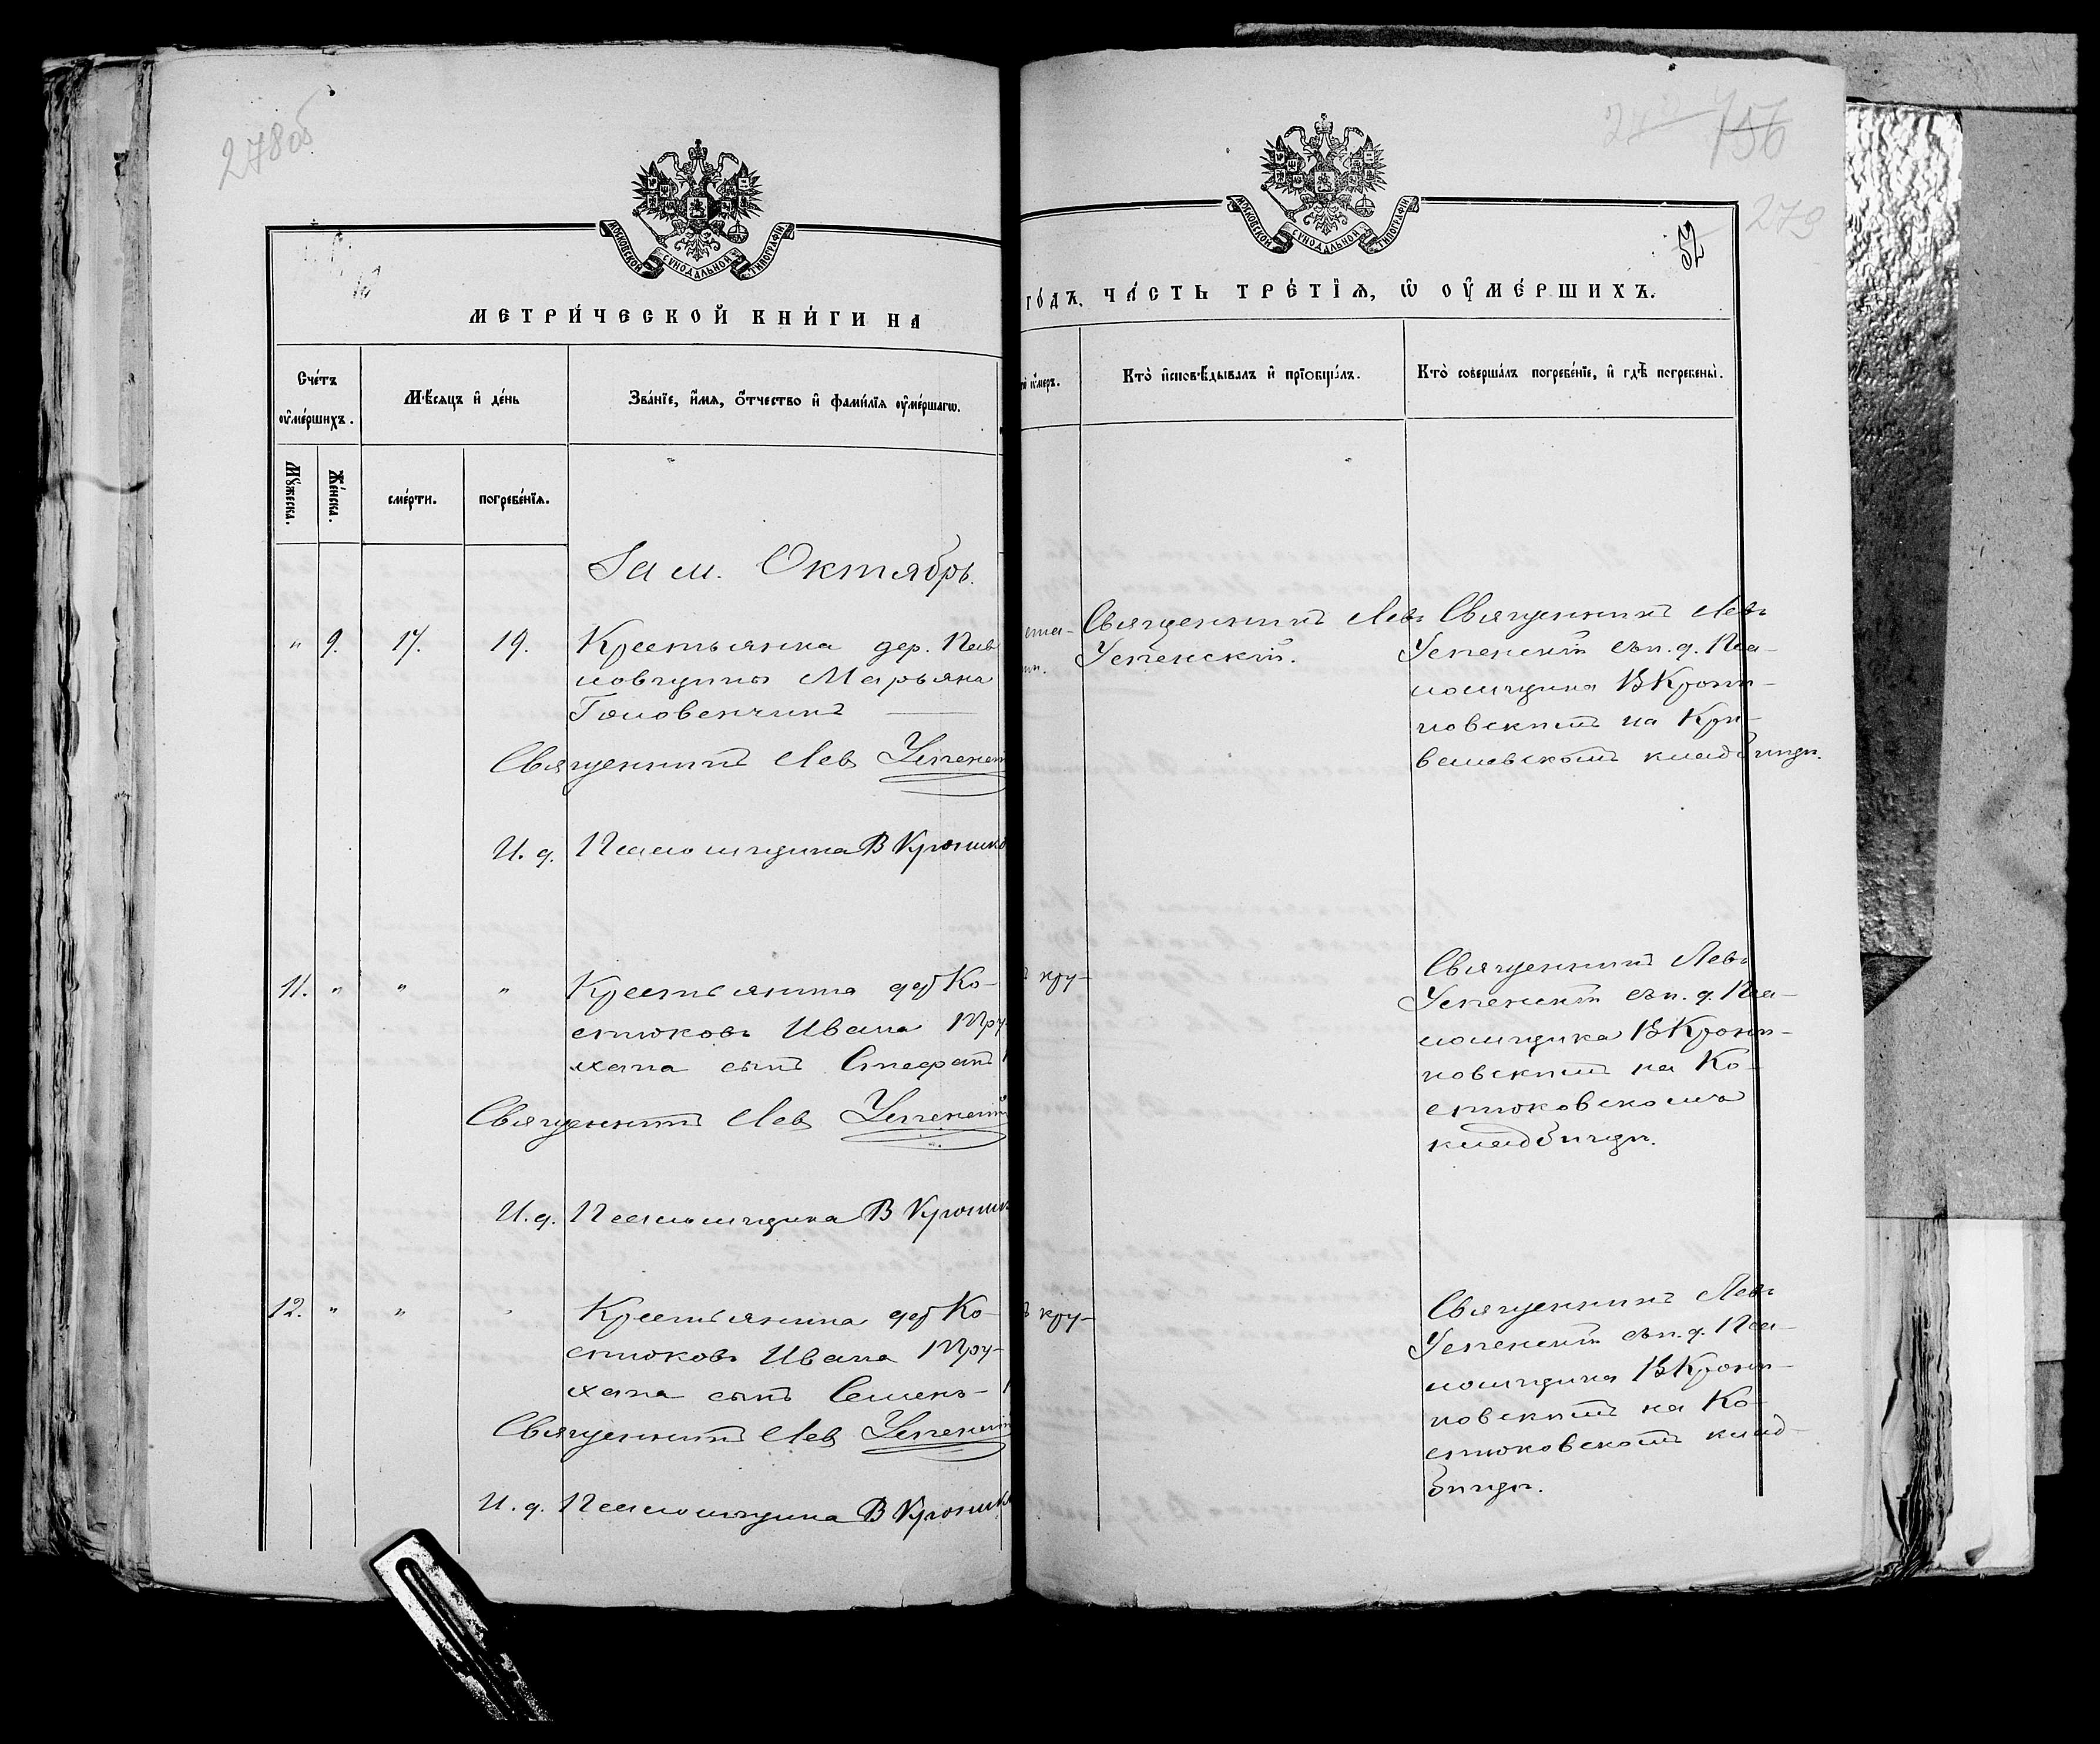 278 об
МОСКОВСКОЙ СѴНОДАЛЬНОЙ ТИПОГРАФІИ
МЕТРИ́ЧЕСКОЙ КНИ́ГИ НА
Сче́тъ ᲂу҆ме́ршихъ.
Мѣ́сяцъ и҆ де́нь
Зва́нїе, и҆́мѧ, ѻ҆́тчество и҆ фами́лїѧ ᲂу҆ме́ршагѡ.
Мꙋ́жеска.
Же́нска.
сме́рти.
погребе́нїѧ.
За м. Октябрь.
" 9. 17. 19. Крестьянка дер.
Марьяна
Головенчицъ
Священникъ Лев Успенскій
И. д. Псаломщика В Кроник
11. " " " Крестьянина дер Ко-
стюковъ Ивана Тру-
хана сынъ Стефанъ
Священникъ Лев Успенскій
И. д. Псаломщика В Кроник
12. " " " Крестьянина дер Ко-
стюковъ Ивана Тру-
хана сынъ Семенъ -
Священникъ Лев Успенскій
И. д. Псаломщика В Кроник
156
279
52
МОСКОВСКОЙ СѴНОДАЛЬНОЙ ТИПОГРАФІИ
ГО́ДЪ, ЧА́СТЬ ТРЕ́ТЇѦ, Ѡ҆ ОУ҆МЕ́РШИХЪ.
Кто̀ и҆сповѣ́дывалъ и҆ прїѡбща́лъ.
Кто̀ соверша́лъ погребе́нїе, и҆ гдѣ̀ погребены̀.
Священникъ Левъ
Успенскій.
Священникъ Левъ
Успенскій съ и. д. Пса-
ломщика В Крони-
ковскимъ на Кри-
вельскомъ кладбищи.
ъ кру-
Священникъ Левъ
Успенскій съ и. д. Пса-
ломщика В Крони-
ковскимъ на Ко-
стюковскомъ
кладбищи.
ъ кру-
Священникъ Левъ
Успенскій съ и. д. Пса-
ломщика В Крони-
ковскимъ на Ко-
стюковскомъ клад-
бищи.